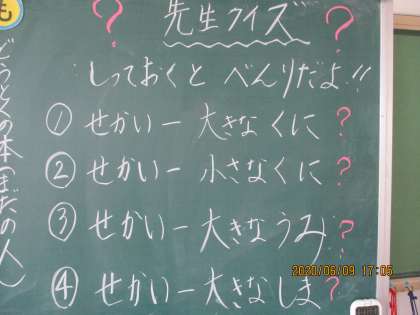 ？ 先生クイズ ？
しっておくと べんりだよ!!
① せかい一 大きな くに ？
② せかい一 小さな くに ？
③ せかい一 大きな うみ ？
④ せかい一 大きな しま ？
も
どうとくの本(まだの人)
2020/06/09 17:05